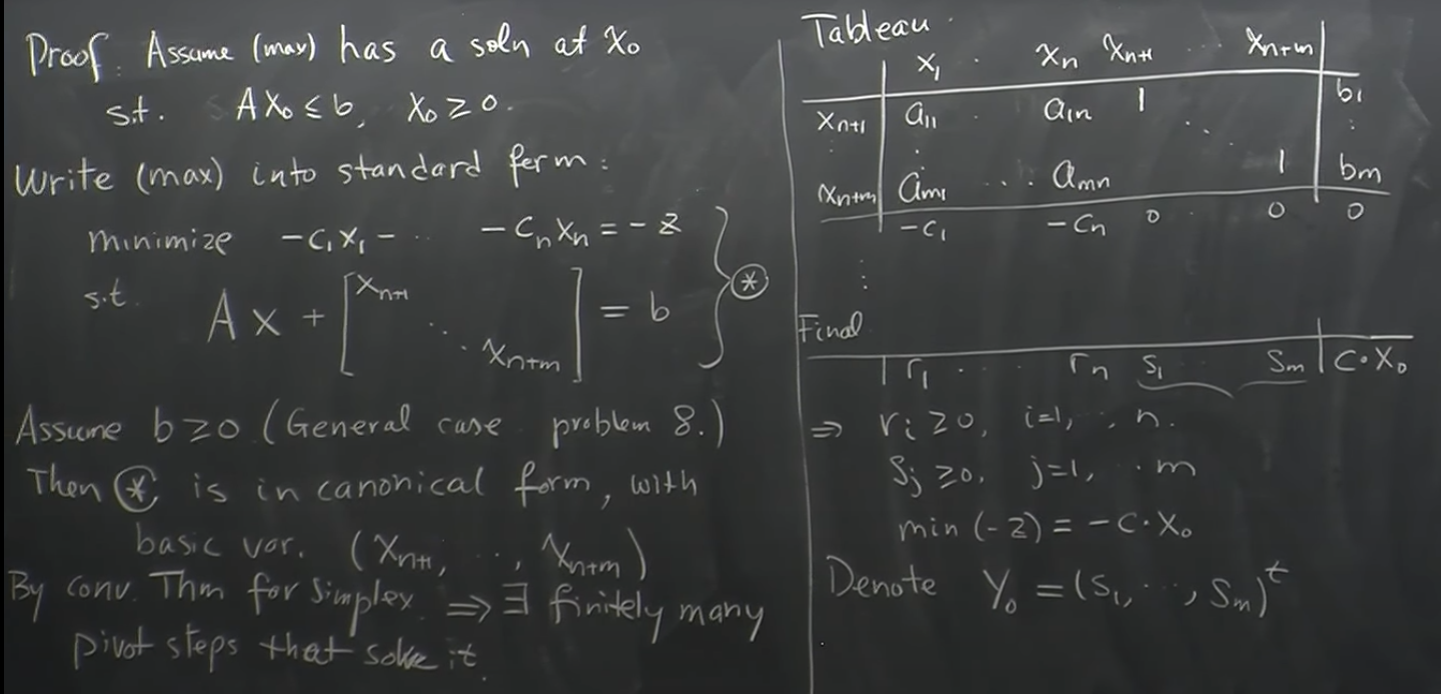 Proof. Assume (max) has a soln at X₀
s.t. AX₀ ≤ b, X₀ ≥ 0.
Write (max) into standard form:
minimize -c₁x₁ - ·· -cₙxₙ = -z
s.t. Ax + [xₙ₊₁ ·· xₙ₊ₘ] = b
⊛
Assume b≥0 (General case problem 8.)
Then ⊛ is in canonical form, with
basic var. (xₙ₊₁, ··, xₙ₊ₘ)
By Conv. Thm for Simplex ⇒ ∃ finitely many
pivot steps that solve it
Tableau
x₁ · xₙ xₙ₊₁ ·· xₙ₊ₘ
xₙ₊₁ a₁₁ · a₁ₙ 1 b₁
⋮ ⋮ ⋱ ⋮
xₙ₊ₘ aₘ₁ ··· aₘₙ 1 bₘ
-c₁ -cₙ 0 · 0 0
⋮
Final
r₁ ··· rₙ s₁ ·· sₘ C·X₀
⇒ rᵢ ≥0, i=1, ·, n.
sⱼ ≥0, j=1, · m
min (-z) = -C·X₀
Denote Y₀ = (s₁, ··, sₘ)ᵗ